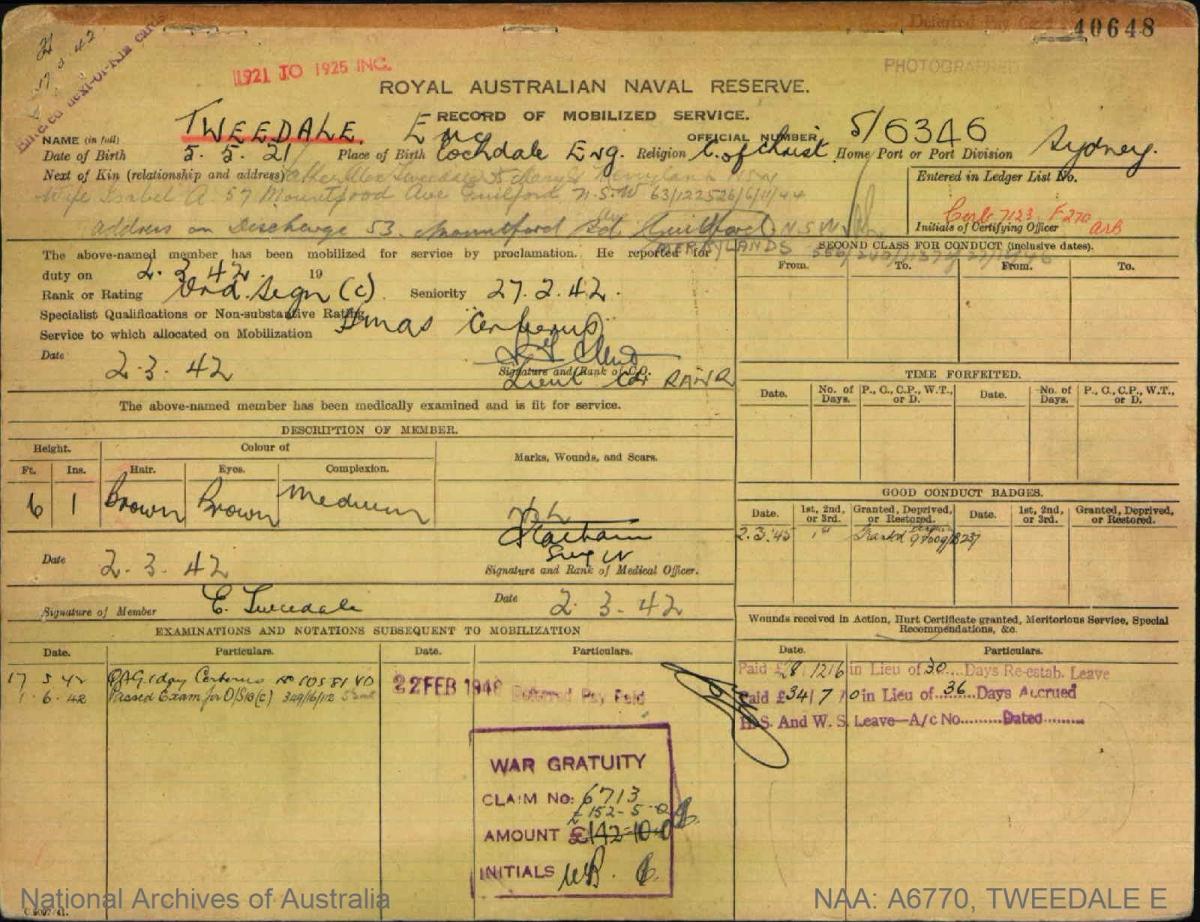 40648
17.3.42
Entered next-of-Kin cards
1921 TO 1925 INC.
PHOTOGRAPHED
ROYAL AUSTRALIAN NAVAL RESERVE.
RECORD OF MOBILIZED SERVICE.
NAME (in full) TWEEDALE. Eric OFFICIAL NUMBER S/6346
Date of Birth 5.5.21 Place of Birth Rochdale Eng. Religion C. of Christ Home Port or Port Division Sydney.
Next of Kin (relationship and address) Father Merrylands NSW
Wife Isabel A. 57 Mountford Ave Guilford N.S.W 63/122526/6/11/44
address on Discharge 53. Mountford Guilford N.S.W
MERRYLANDS
Entered in Ledger List No.
Cerb 7123. F270
Initials of Certifying Officer
The above-named member has been mobilized for service by proclamation. He reported for
duty on 2.3.42. 19
Rank or Rating Ord. Sign (c) Seniority 27.2.42.
Specialist Qualifications or Non-substantive Rating
Service to which allocated on Mobilization Hmas "Cerberus"
Date 2.3.42
Signature and Rank of C.O.
Lieut Cdr RANR
The above-named member has been medically examined and is fit for service.
DESCRIPTION OF MEMBER.
Height. Colour of Marks, Wounds, and Scars.
Ft. Ins. Hair. Eyes. Complexion.
6 1 Brown Brown Medium
Date 2.3.42
Signature and Rank of Medical Officer.
Signature of Member E. Tweedale Date 2.3.42
SECOND CLASS FOR CONDUCT (inclusive dates).
From. To. From. To.
TIME FORFEITED.
Date. No. of Days. P., C., C.P., W.T., or D. Date. No. of Days. P., C., C.P., W.T., or D.
GOOD CONDUCT BADGES.
Date. 1st, 2nd, or 3rd. Granted, Deprived, or Restored. Date. 1st, 2nd, or 3rd. Granted, Deprived, or Restored.
2.3.'45 1st Granted
EXAMINATIONS AND NOTATIONS SUBSEQUENT TO MOBILIZATION
Date. Particulars. Date. Particulars.
17 3 42 1 day Cerberus No 10581
1.6.42 Passed Exam for O/Sig(c) 349/16/12
22 FEB 1946 Deferred Pay Paid
WAR GRATUITY
CLAIM No: 6713
£152-5-0
AMOUNT £142-10-0
INITIALS
Wounds received in Action, Hurt Certificate granted, Meritorious Service, Special
Recommendations, &c.
Date. Particulars.
Paid £28.12/6 in Lieu of 30 Days Re-estab. Leave
Paid £34/7/0 in Lieu of 36 Days Accrued
H.S. And W.S. Leave—A/c No.......... Dated..........
National Archives of Australia
NAA: A6770, TWEEDALE E